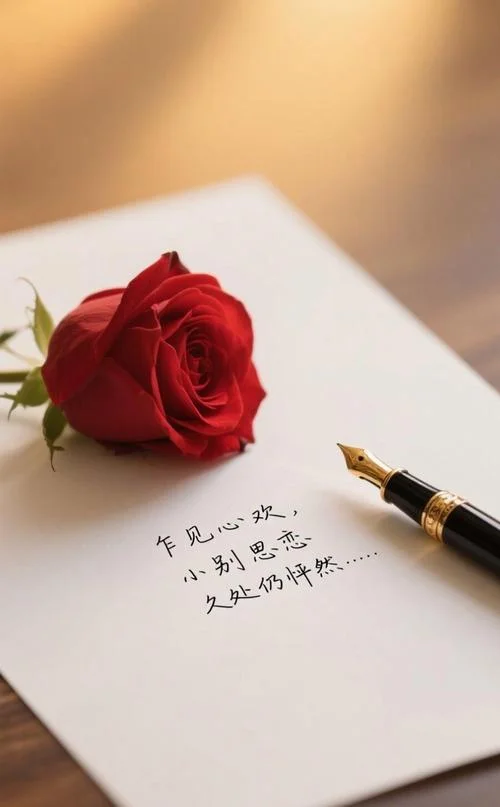 乍见心欢，
小别思恋
久处仍怦然……